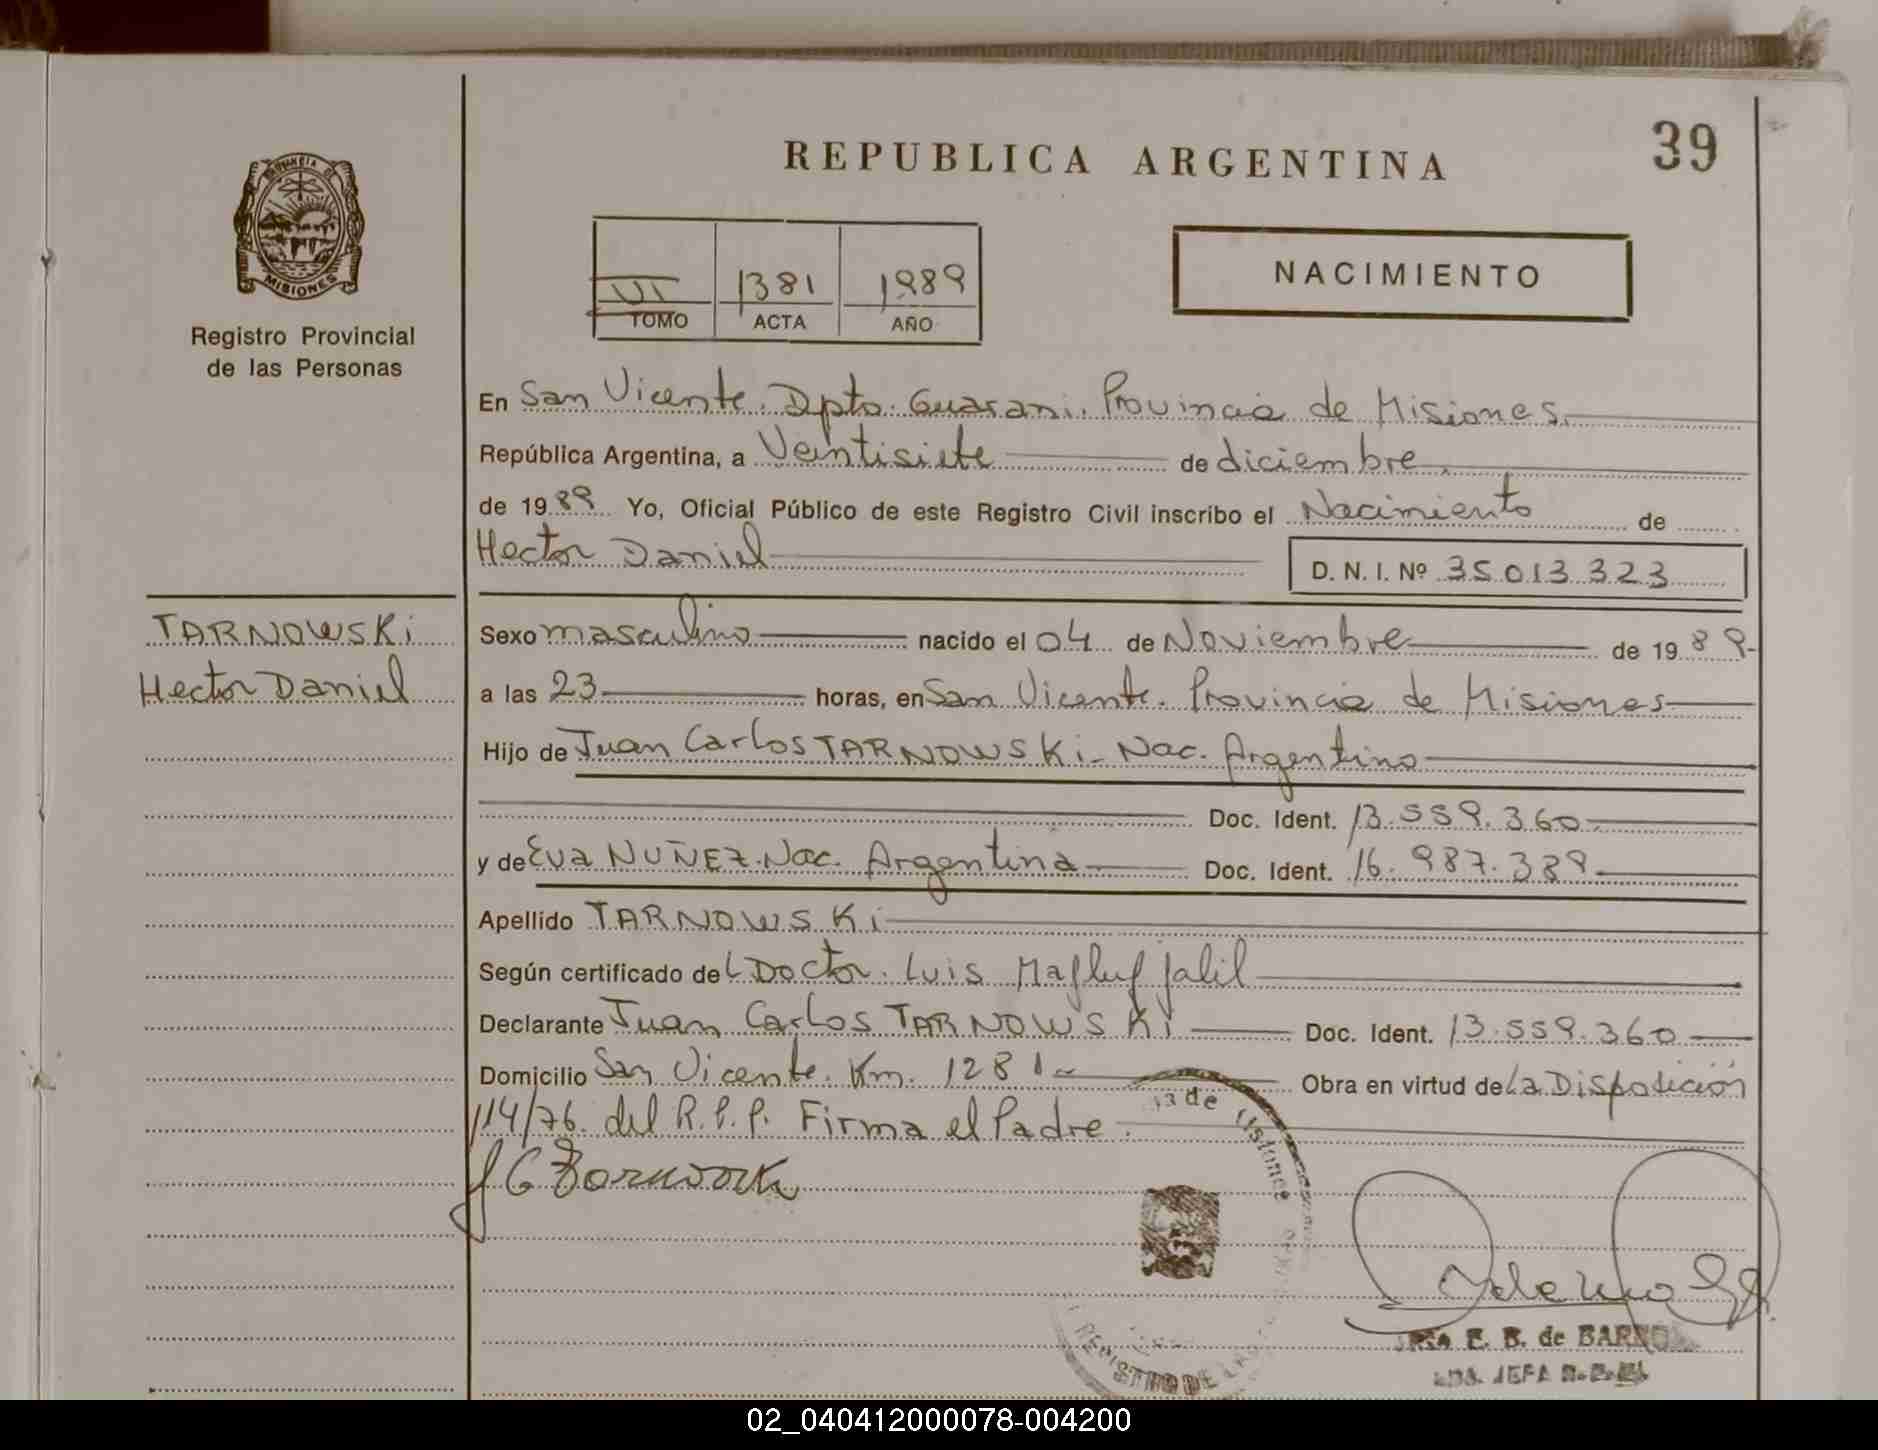 39
REPUBLICA ARGENTINA
PROVINCIA DE
MISIONES
Registro Provincial
de las Personas
VI 1381 1989
TOMO ACTA AÑO
NACIMIENTO
En San Vicente. Dpto. Guarani. Provincia de Misiones.
República Argentina, a Veintisiete de diciembre
de 1989 Yo, Oficial Público de este Registro Civil inscribo el Nacimiento de
Hector Daniel
D. N. I. Nº 35 013 323
TARNOWSKi
Hector Daniel
Sexo masculino nacido el 04 de Noviembre de 1989-
a las 23 horas, en San Vicente. Provincia de Misiones
Hijo de Juan Carlos TARNOWSKi- Nac. Argentino
Doc. Ident. 13.559.360
y de Eva NUÑEZ. Nac. Argentina Doc. Ident. 16.987.389
Apellido TARNOWSKi
Según certificado del Doctor. Luis Jalil
Declarante Juan Carlos TARNOWSKi Doc. Ident. 13.559.360
Domicilio San Vicente. Km. 1281- Obra en virtud de La Disposición
114/76. del R.P.P. Firma el Padre.
E. B. de
JEFA
REGISTRO DE LAS
02_040412000078-004200